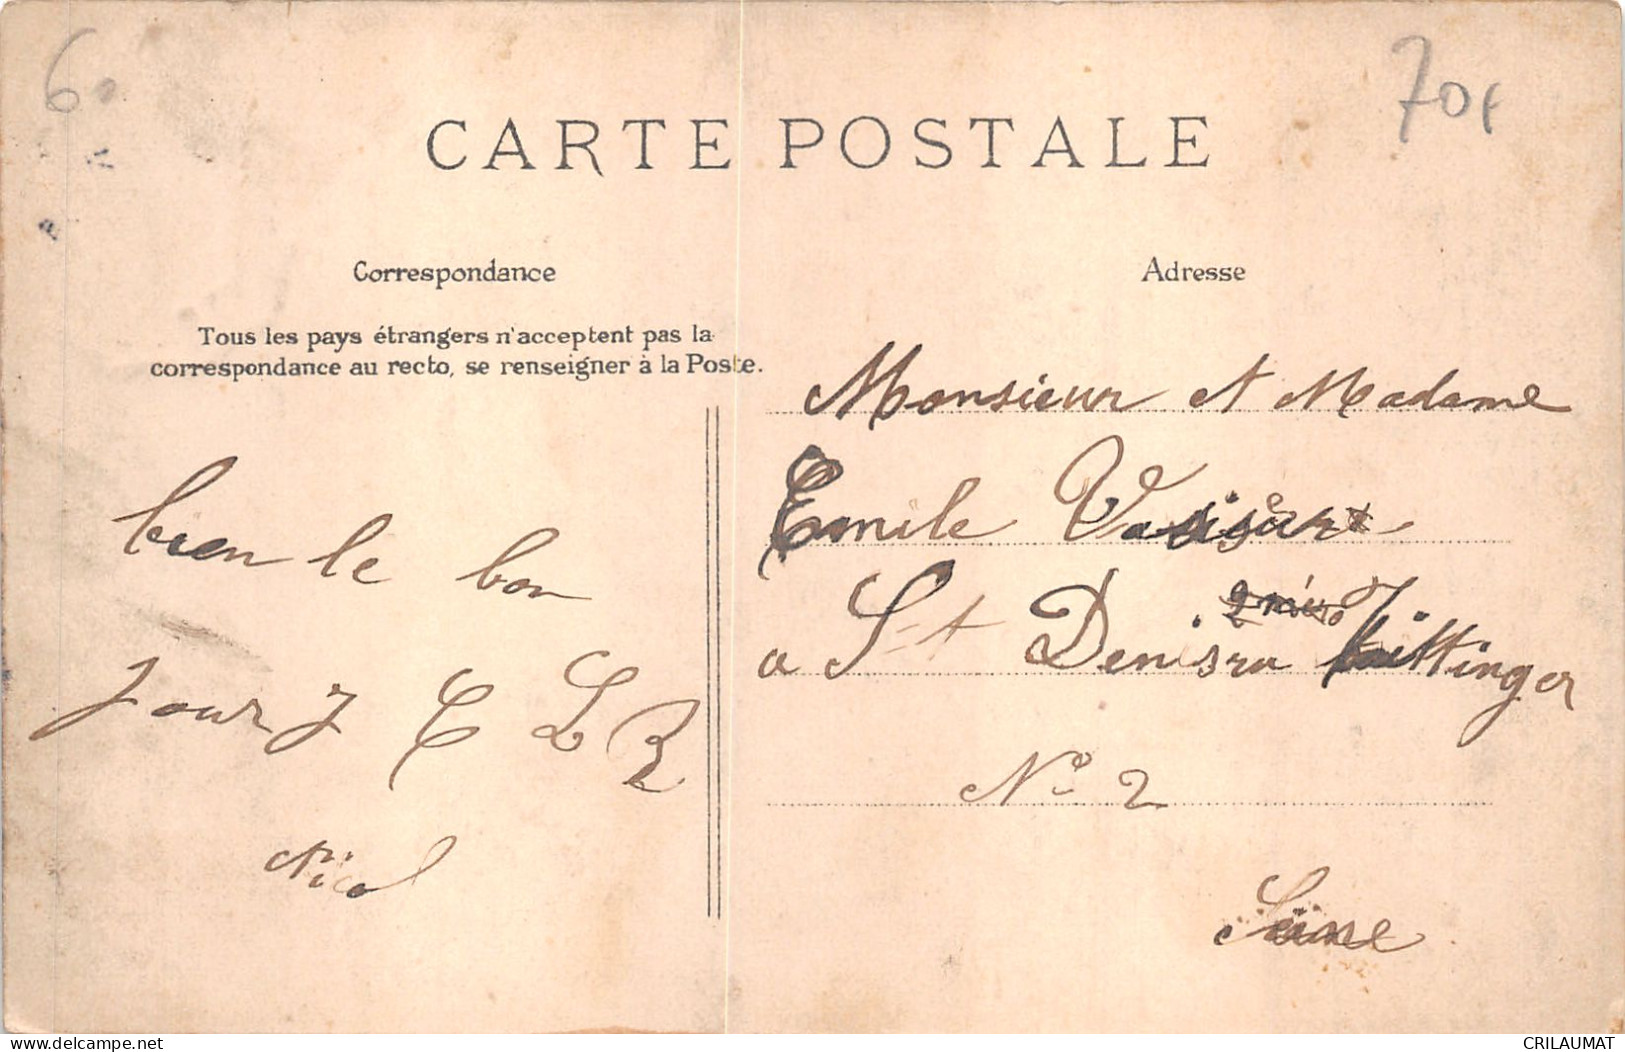 60
70f
CARTE POSTALE
Correspondance
Tous les pays étrangers n'acceptent pas la
correspondance au recto, se renseigner à la Poste.
bien le bon
Jour J E L R
Nicol
Adresse
Monsieur et Madame
Emile
a St Denis ru Kittinger
No 2
Seine
CRILAUMAT